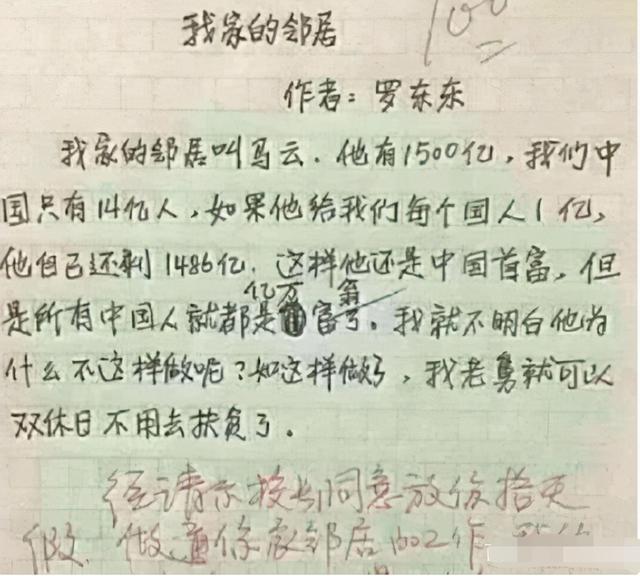 我家的邻居
100
作者：罗东东
我家的邻居叫马云．他有1500亿，我们中
国只有14亿人，如果他给我们每个国人1亿，
他自己还剩1486亿．这样他还是中国首富，但
亿万 翁
是所有中国人就都是富了。我就不明白他为
什么不这样做呢？如这样做了，我老舅就可以
双休日不用去扶贫了。
经请示校长同意放你
假 做通你家邻居的工作